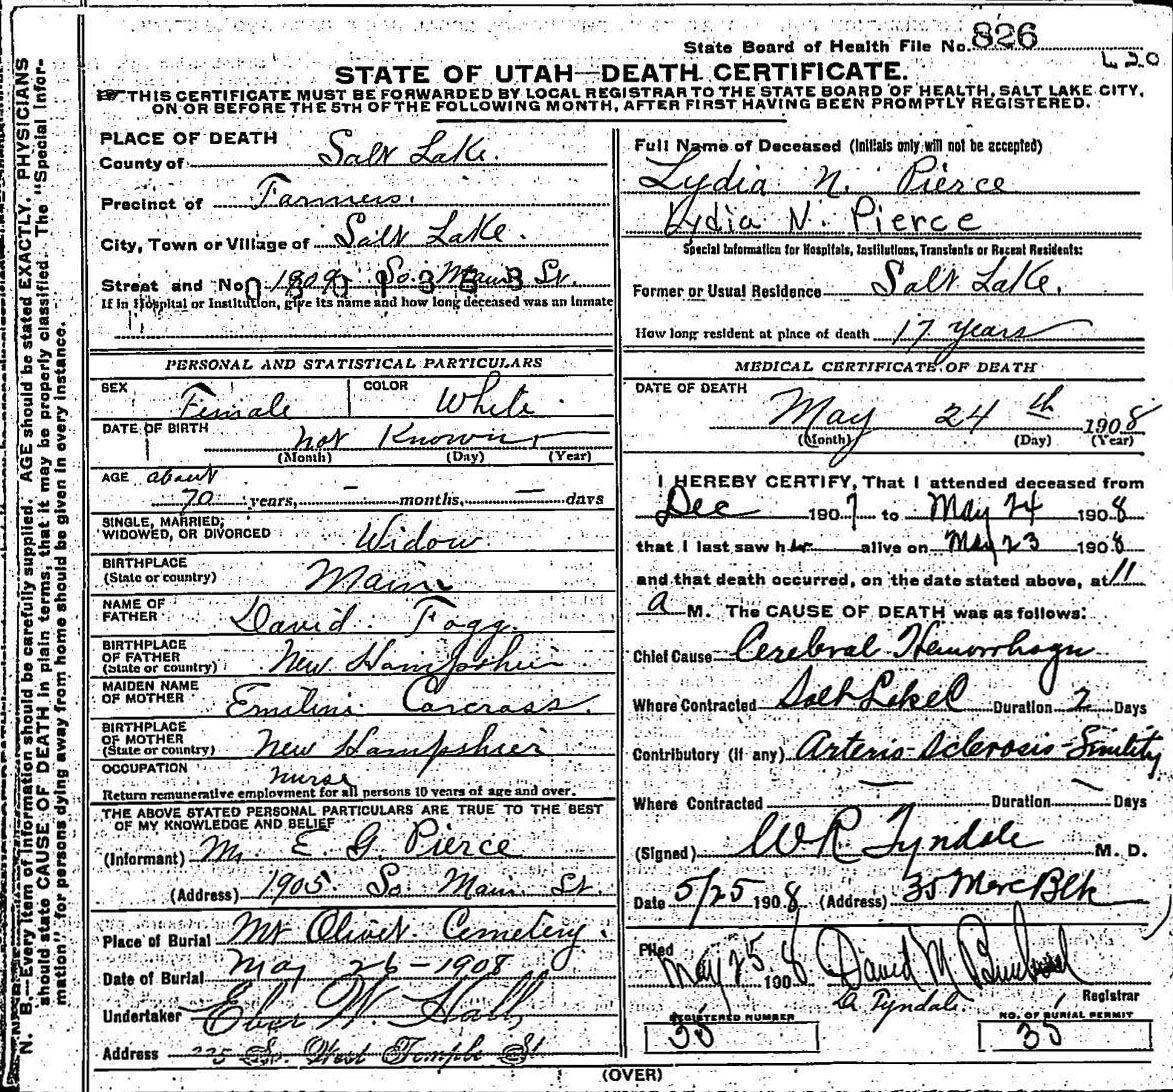 State Board of Health File No. 826
420
STATE OF UTAH—DEATH CERTIFICATE.
THIS CERTIFICATE MUST BE FORWARDED BY LOCAL REGISTRAR TO THE STATE BOARD OF HEALTH, SALT LAKE CITY,
ON OR BEFORE THE 5TH OF THE FOLLOWING MONTH, AFTER FIRST HAVING BEEN PROMPTLY REGISTERED.
N. B.—Every item of information should be carefully supplied. AGE should be stated EXACTLY. PHYSICIANS
should state CAUSE OF DEATH in plain terms, that it may be properly classified. The "Special Infor-
mation" for persons dying away from home should be given in every instance.
PLACE OF DEATH
County of Salt Lake.
Precinct of Farmers.
City, Town or Village of Salt Lake.
Street and No. So. Main St.
If in Hospital or Institution, give its name and how long deceased was an inmate
PERSONAL AND STATISTICAL PARTICULARS
SEX Female COLOR White
DATE OF BIRTH not Known
(Month) (Day) (Year)
AGE about
70 years, — months, — days
SINGLE, MARRIED,
WIDOWED, OR DIVORCED Widow
BIRTHPLACE
(State or country) Maine
NAME OF
FATHER David Fogg.
BIRTHPLACE
OF FATHER
(State or country) New Hampshier
MAIDEN NAME
OF MOTHER Emiline Carcrass.
BIRTHPLACE
OF MOTHER
(State or country) New Hampshier
OCCUPATION nurse
Return remunerative employment for all persons 10 years of age and over.
THE ABOVE STATED PERSONAL PARTICULARS ARE TRUE TO THE BEST
OF MY KNOWLEDGE AND BELIEF
(Informant) Mr. E. G. Pierce
(Address) 1905 So. Main St
Place of Burial Mt Olivet Cemetery.
Date of Burial May 26-1908
Undertaker Eber W. Hall
Address So. West Temple St
Full Name of Deceased (Initials only will not be accepted)
Lydia N. Pierce
Lydia N. Pierce
Special Information for Hospitals, Institutions, Transients or Recent Residents:
Former or Usual Residence Salt Lake.
How long resident at place of death 17 years
MEDICAL CERTIFICATE OF DEATH
DATE OF DEATH
May 24th 1908
(Month) (Day) (Year)
I HEREBY CERTIFY, That I attended deceased from
Dec 1907 to May 24 1908
that I last saw her alive on May 23 1908
and that death occurred, on the date stated above, at 11
a M. The CAUSE OF DEATH was as follows:
Chief Cause Cerebral Hemorrhage
Where Contracted Duration 2 Days
Contributory (if any) Arterio Sclerosis Sinility
Where Contracted — Duration — Days
(Signed) WR Tyndale M. D.
Date 5/25 1908 (Address) 35 Merc Blk
Filed May 25 1908 David M.
Tyndale. Registrar
REGISTERED NUMBER NO. OF BURIAL PERMIT
35 35
(OVER)